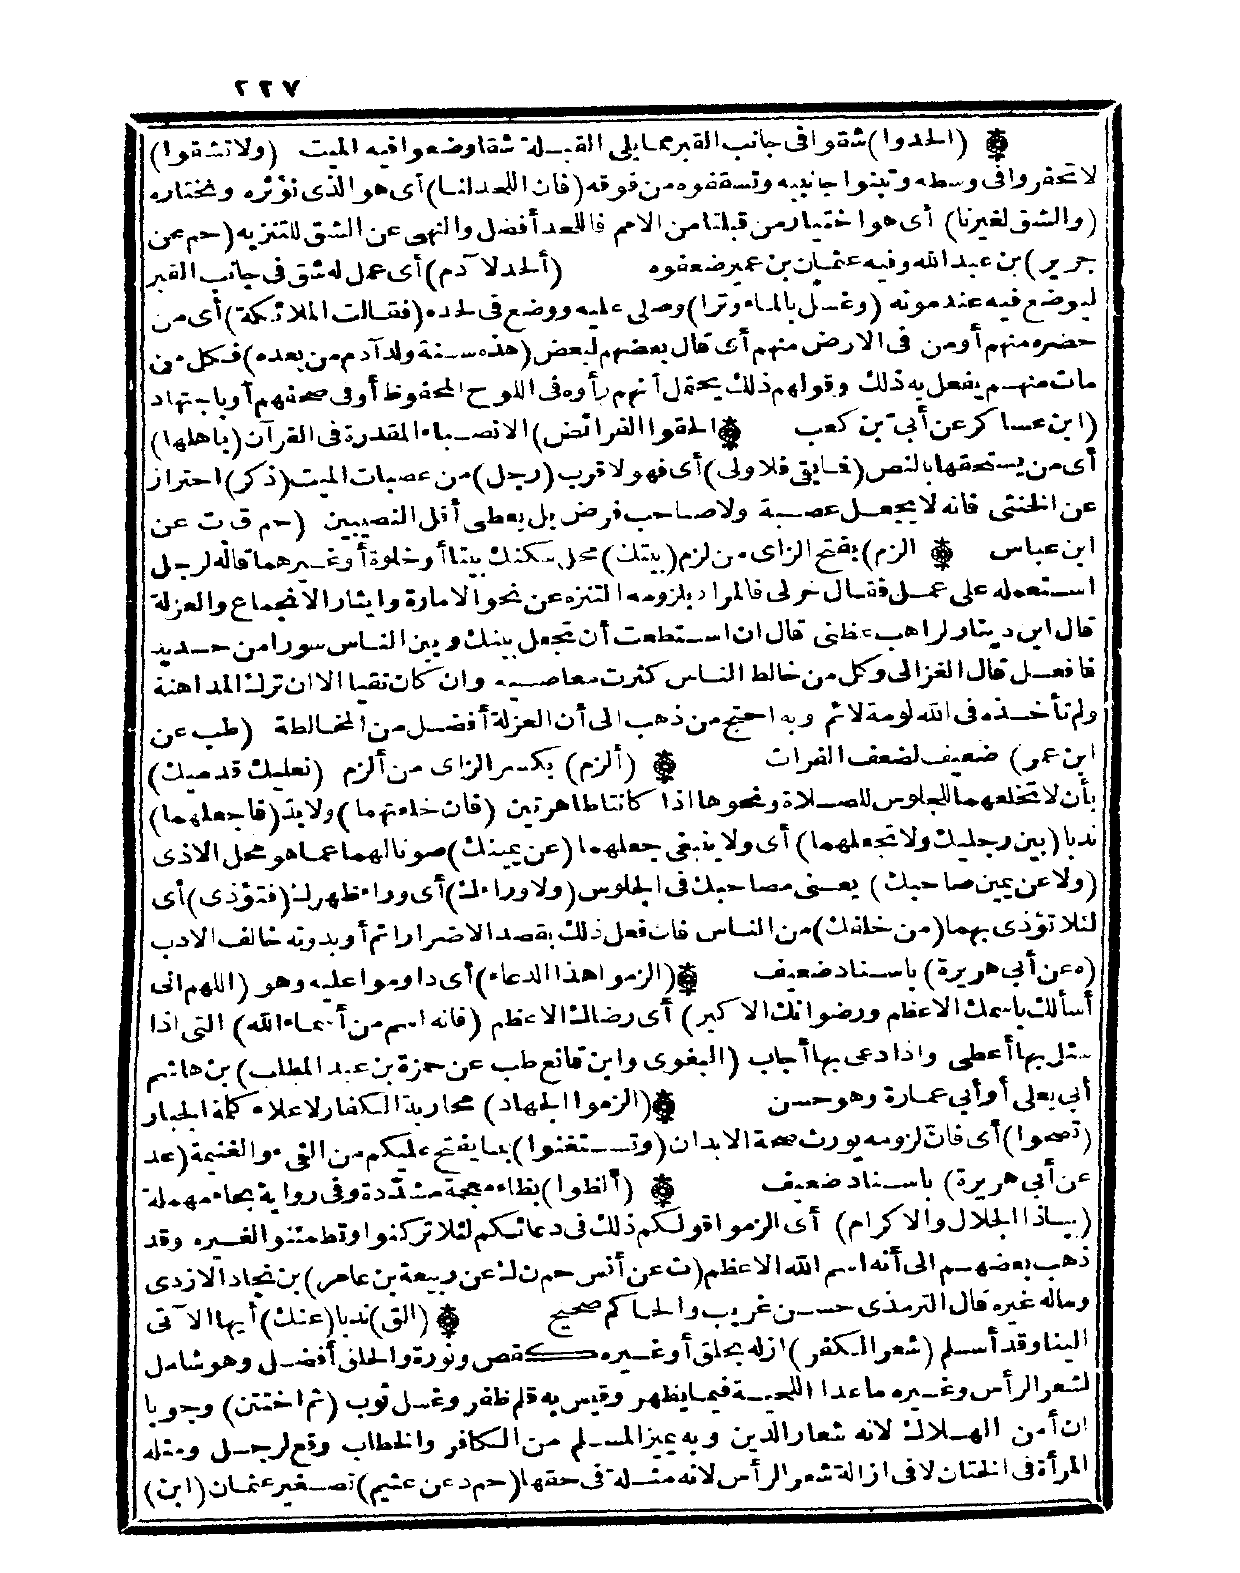 ٢٢٧
(الحدوا) شقوا في جانب القبر مما يلي القبلة شقا وضعوا فيه الميت (ولا تشقوا)
لا تحفروا في وسطه وتبنوا جانبيه وتسقفوه من فوقه (فان اللحد لنا) أى هو الذى نؤثره ونختاره
(والشق لغيرنا) أى هو اختيار من قبلنا من الامم فاللحد أفضل والنهى عن الشق للتنزيه (حم عن
جرير) بن عبد الله وفيه عثمان بن عمير ضعفوه (ألحد لآدم) أى عمل له شق فى جانب القبر
ليوضع فيه عند موته (وغسل بالماء وترا) وصلى عليه ووضع فى لحده (فقالت الملائكة) أى من
حضره منهم أو من فى الارض منهم أى قال بعضهم لبعض (هذه سنة ولد آدم من بعده) فكل من
مات منهم يفعل به ذلك وقولهم ذلك يحتمل أنهم رأوه فى اللوح المحفوظ أو فى صحفهم أو باجتهاد
(ابن عساكر عن أبى بن كعب الحقوا الفرائض) الانصباء المقدرة فى القرآن (باهلها)
أى من يستحقها بالنص (فما بقى فلاولى) أى فهو لاقرب (رجل) من عصبات الميت (ذكر) احتراز
عن الخنثى فانه لا يجعل عصبة ولا صاحب فرض بل يعطى أقل النصيبين (حم ق ت عن
ابن عباس الزم) بفتح الزاى من لزم (بيتك) محل سكنك بيتا أو خلوة أو غيرهما قاله لرجل
استعمله على عمل فقال خر لى فالمراد بلزومه التنزه عن نحو الامارة وايثار الانجماع والعزلة
قال ابن دينار لراهب عظنى قال ان استطعت أن تجعل بينك وبين الناس سورا من حديد
فافعل قال الغزالى وكل من خالط الناس كثرت معاصيه وان كان تقيا الا ان ترك المداهنة
ولم تأخذه فى الله لومة لائم وبه احتج من ذهب الى أن العزلة أفضل من المخالطة (طب عن
ابن عمر) ضعيف لضعف الفرات (ألزم) بكسر الزاى من ألزم (نعليك قدميك)
بأن لا تخلعهما للجلوس للصلاة ونحوها اذا كانتا طاهرتين (فان خلعتهما) ولا بد (فاجعلهما)
ندبا (بين رجليك ولا تجعلهما) أى ولا ينبغى جعلهما (عن يمينك) صونا لهما عما هو محل الاذى
(ولا عن يمين صاحبك) يعنى مصاحبك فى الجلوس (ولا وراءك) أى وراء ظهرك (فتؤذى) أى
لئلا تؤذى بهما (من خلفك) من الناس فان فعل ذلك بقصد الاضرار اثم أو بدونه خالف الادب
(ه عن أبى هريرة) باسناد ضعيف (الزموا هذا الدعاء) أى داوموا عليه وهو (اللهم انى
أسألك باسمك الاعظم ورضوانك الاكبر) أى رضاك الاعظم (فانه اسم من أسماء الله) التى اذا
سئل بها أعطى واذا دعى بها أجاب (البغوى وابن قانع طب عن حمزة بن عبد المطلب) بن هاشم
أبى يعلى أو أبى عمارة وهو حسن (الزموا الجهاد) محاربة الكفار لاعلاء كلمة الجبار
(تصحوا) أى فان لزومه يورث صحة الابدان (وتستغنوا) بما يفتح عليكم من الفىء والغنيمة (عد
عن أبى هريرة) باسناد ضعيف (ألظوا) بظاء معجمة مشددة وفى رواية بحاء مهملة
(بياذا الجلال والاكرام) أى الزموا قولكم ذلك فى دعائكم لئلا تركنوا وتطمئنوا لغيره وقد
ذهب بعضهم الى أنه اسم الله الاعظم (ت عن أنس حم ن ك عن ربيعة بن عامر) بن نجاد الازدى
وماله غيره قال الترمذى حسن غريب والحاكم صحيح (الق) ندبا (عنك) أيها الآتى
الينا وقد أسلم (شعر الكفر) ازله بحلق أو غيره كقص ونورة والحلق أفضل وهو شامل
لشعر الرأس وغيره ما عدا اللحية فيما يظهر وقيس به قلم ظفر وغسل ثوب (ثم اختتن) وجوبا
ان أمن الهلاك لانه شعار الدين وبه يميز المسلم من الكافر والخطاب وقع لرجل ومثله
المرأة فى الختان لا فى ازالة شعر الرأس لانه مثلة فى حقها (حم د عن عثيم) تصغير عثمان (ابن)